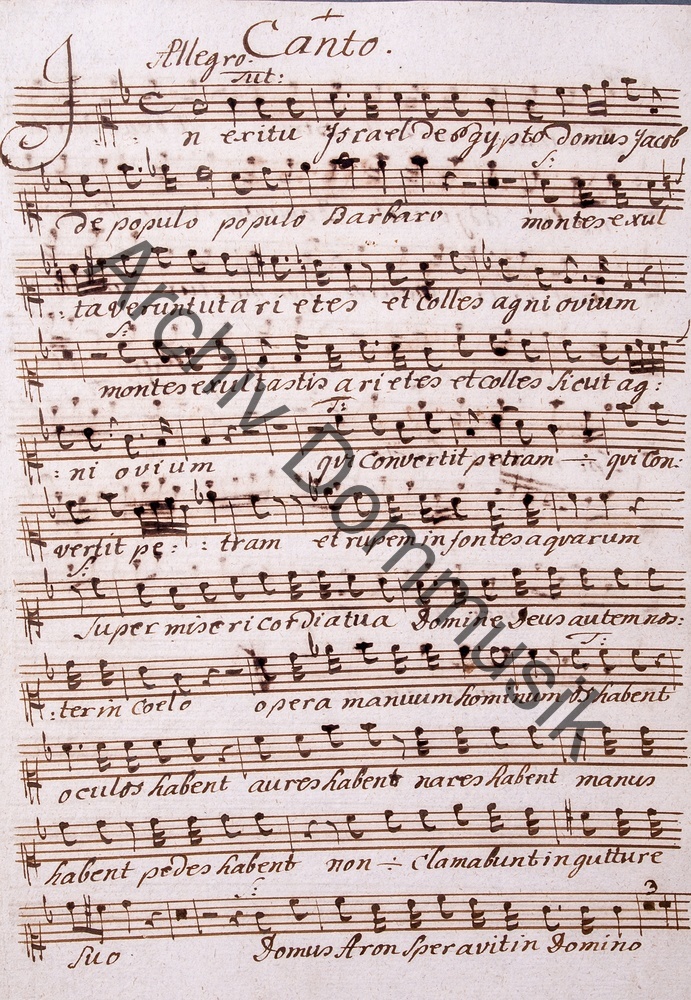 Canto.
Allegro.
Tut:
In exitu Israel de Ægypto domus Jacob
S:
de populo populo Barbaro montes exul
: ta verunt ut arietes et Colles agni ovium
S:
montes exultastis arietes et colles sicut ag:
T:
: ni ovium qui Convertit petram ÷ qui Con:
vertit pe: : tram et rupem in fontes aquarum
S:
super misericordia tua Domine Deus autem nos:
T:
: ter in Coelo opera manuum hominum Os habent
oculos habent aures habent nares habent manus
habent pedes habent non ÷ Clamabunt in gutture
S:
3
suo Domus Aron Speravit in Domino
Archiv Dommusik